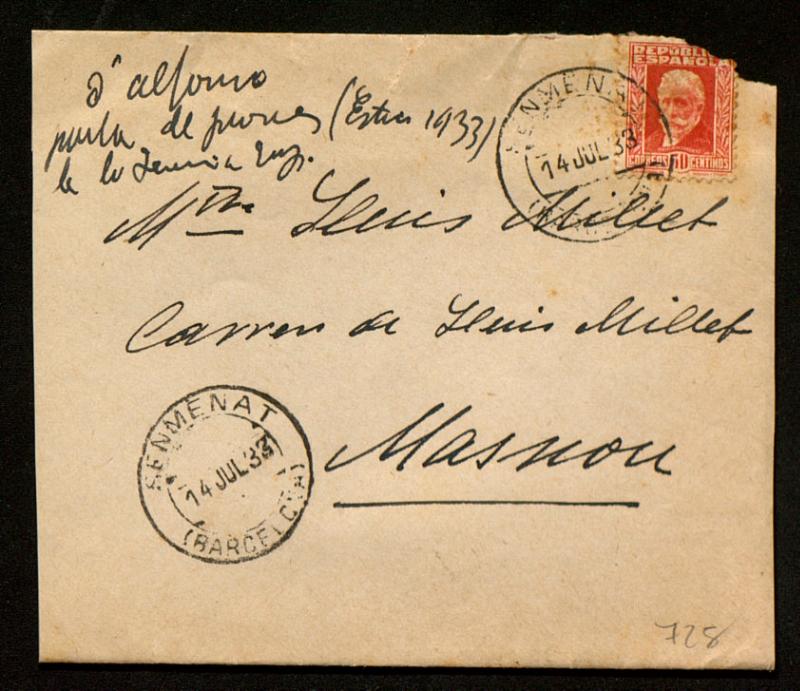 REPÚBLICA
ESPAÑOLA
CORREOS 30 CENTIMOS
SENMENAT
14 JUL 33
D'alfonso
parla de
(Estiu 1933)
de la
Mtre Lluis Millet
Carrer de Lluis Millet
Masnou
SENMENAT
14 JUL 33
(BARCELONA)
728